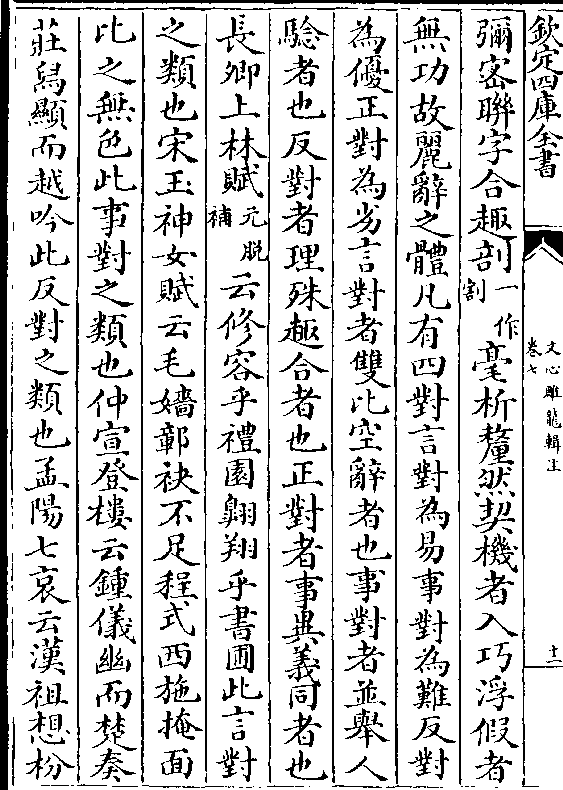 欽定四庫全書
文心雕龍輯注
卷七
十二
彌密聯字合趣剖一作割毫析釐然契機者入巧浮假者
無功故麗辭之體凡有四對言對為易事對為難反對
為優正對為劣言對者雙比空辭者也事對者並舉人
驗者也反對者理殊趣合者也正對者事異義同者也
長卿上林賦元脫補云修容乎禮園翺翔乎書圃此言對
之類也宋玉神女賦云毛嬙鄣袂不足程式西施掩面
比之無色此事對之類也仲宣登樓云鍾儀幽而楚奏
莊舄顯而越吟此反對之類也孟陽七哀云漢祖想枌